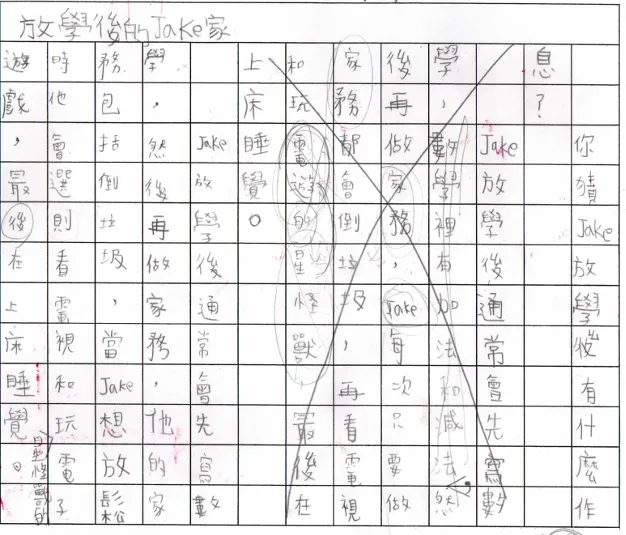 放學後的Jake家
你猜Jake放學後有什麼作
息？
Jake放學後通常會先寫數
學，數學裡有加法和減法然
後再做家務，Jake每次只要做
家務都會倒垃圾，再看電視
和玩電遊的星怪獸 最後在
上床睡覺。
Jake放學後通常會先寫數
學，然後再做家務，他的家
務包括倒垃圾，當Jake想放鬆
時他會選則看電視和玩電子
星怪獸的
遊戲，最後在上床睡覺。